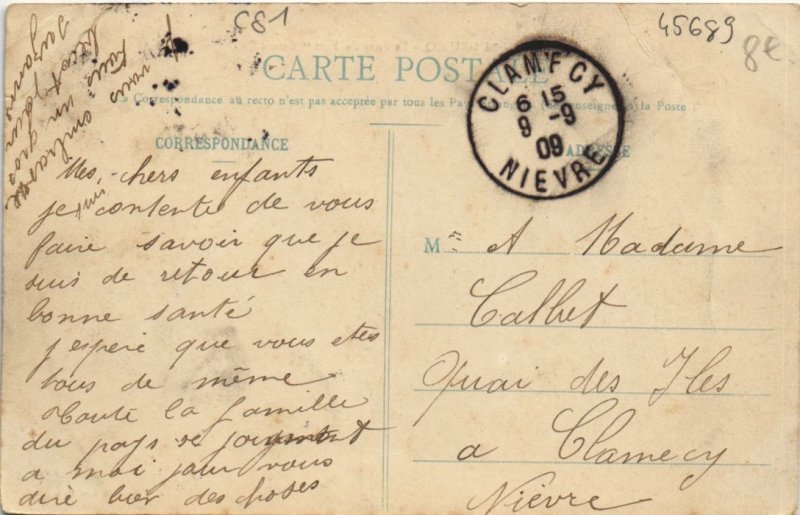 C81
45689
8€
CARTE POSTALE
La Correspondance au recto n'est pas acceptée par tous les Pays (se renseigner à la Poste)
CLAMECY
6 15
9 -9
09
NIEVRE
CORRESPONDANCE
ADRESSE
Mes chers enfants
je contente de vous
faire savoir que je
suis de retour en
bonne santé
j'espere que vous etes
tous de même
Toute la famille
du pays se joignent
a moi pour vous
dire bien des choses
et vous embrasse
tous un gros
M
A Madame
Calbet
Quai des Iles
a Clamecy
Nièvre